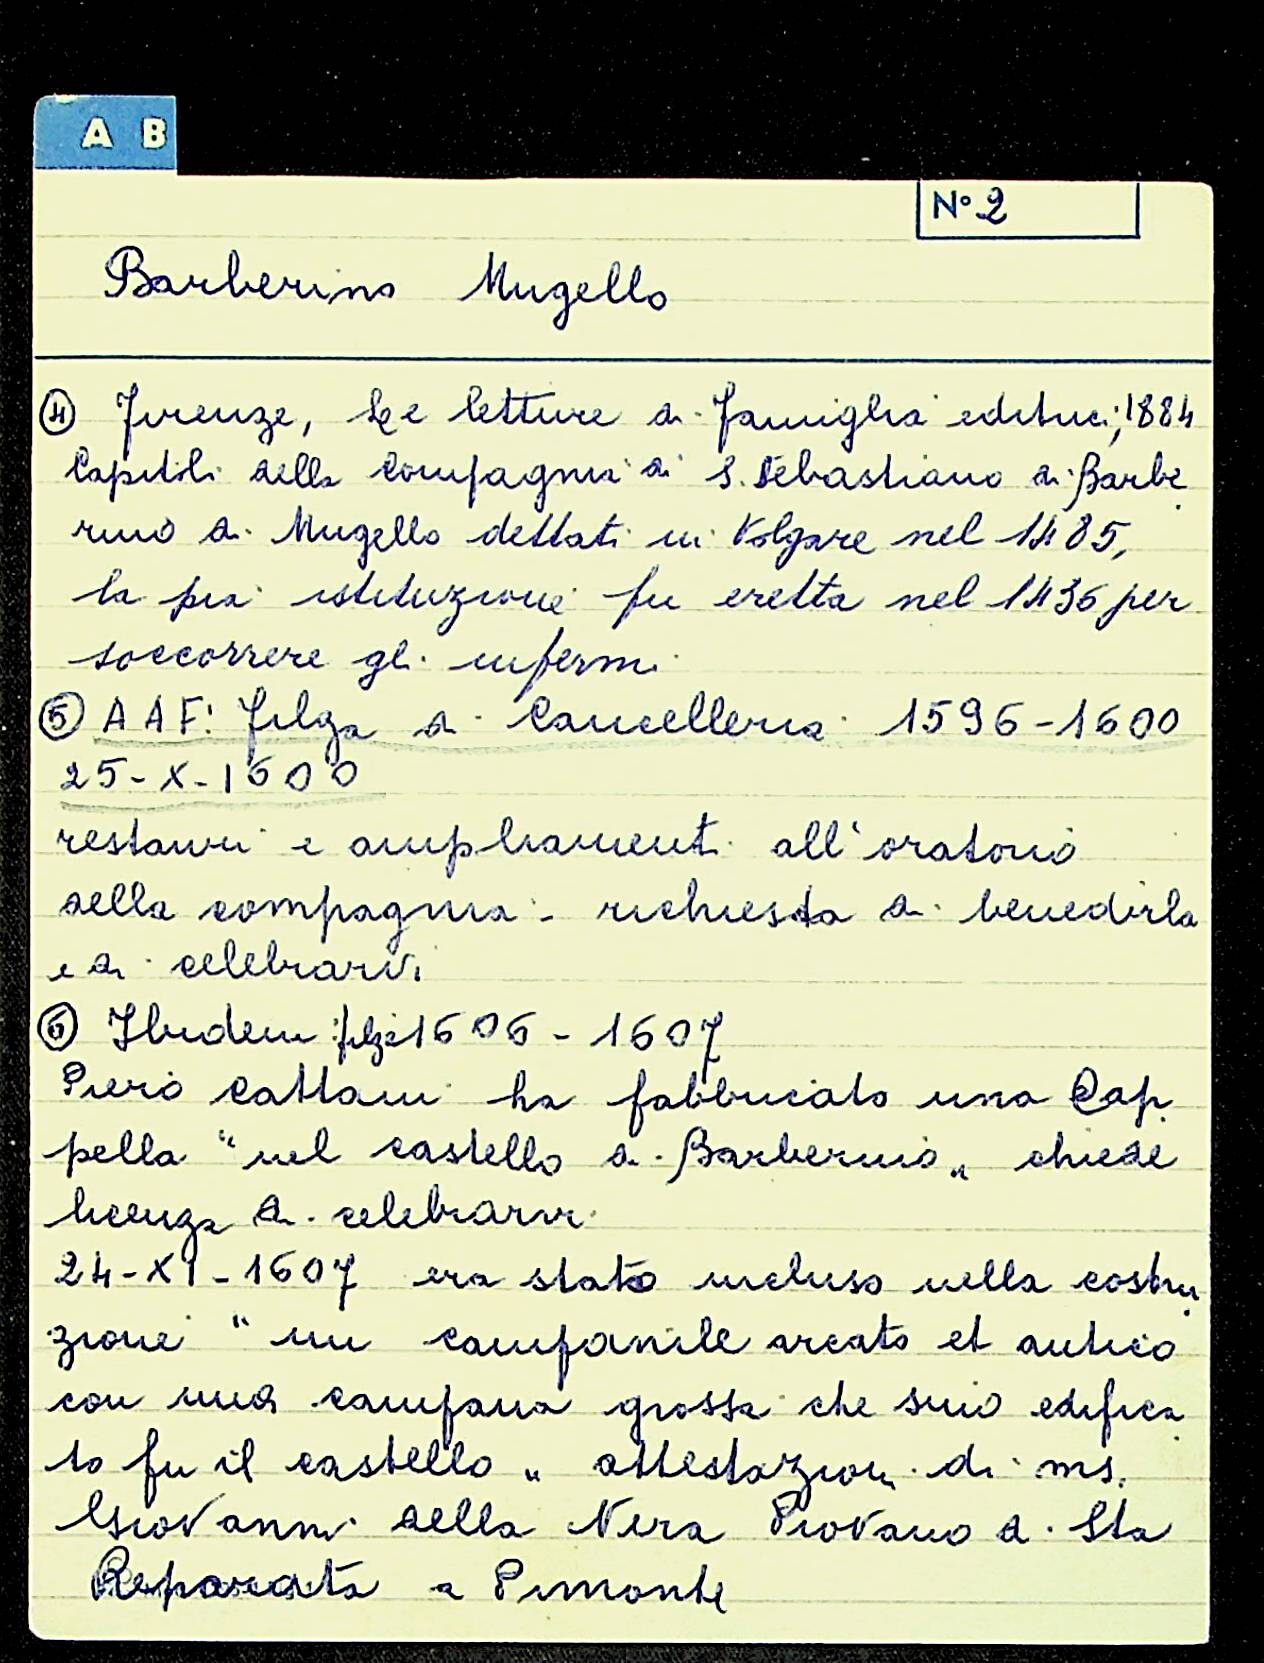 A B
N° 2
Barberino Mugello
④ Firenze, Le letture di famiglia editrici, 1884
Capitoli della Compagnia di S. Sebastiano di Barbe
rino di Mugello dettati in Volgare nel 1485,
la pia istituzione fu eretta nel 1436 per
soccorrere gli infermi
⑤ A A F: filza di Cancelleria 1596-1600
25-X-1600
restauri e ampliamenti all'oratorio
della compagnia - richiesta di benedirla
e di celebrarvi
⑥ Ibidem filze 1606-1607
Piero Cattani ha fabbricato una Cap
pella "nel castello di Barberino" chiede
licenza di celebrarvi
24-XI-1607 era stato incluso nella costru
zione "un campanile arcato et antico
con una campana grossa che sino edifica
to fu il castello" attestazion di ms.
Giovanni della Nera Piovano di Sta
Reparata a Pimonte